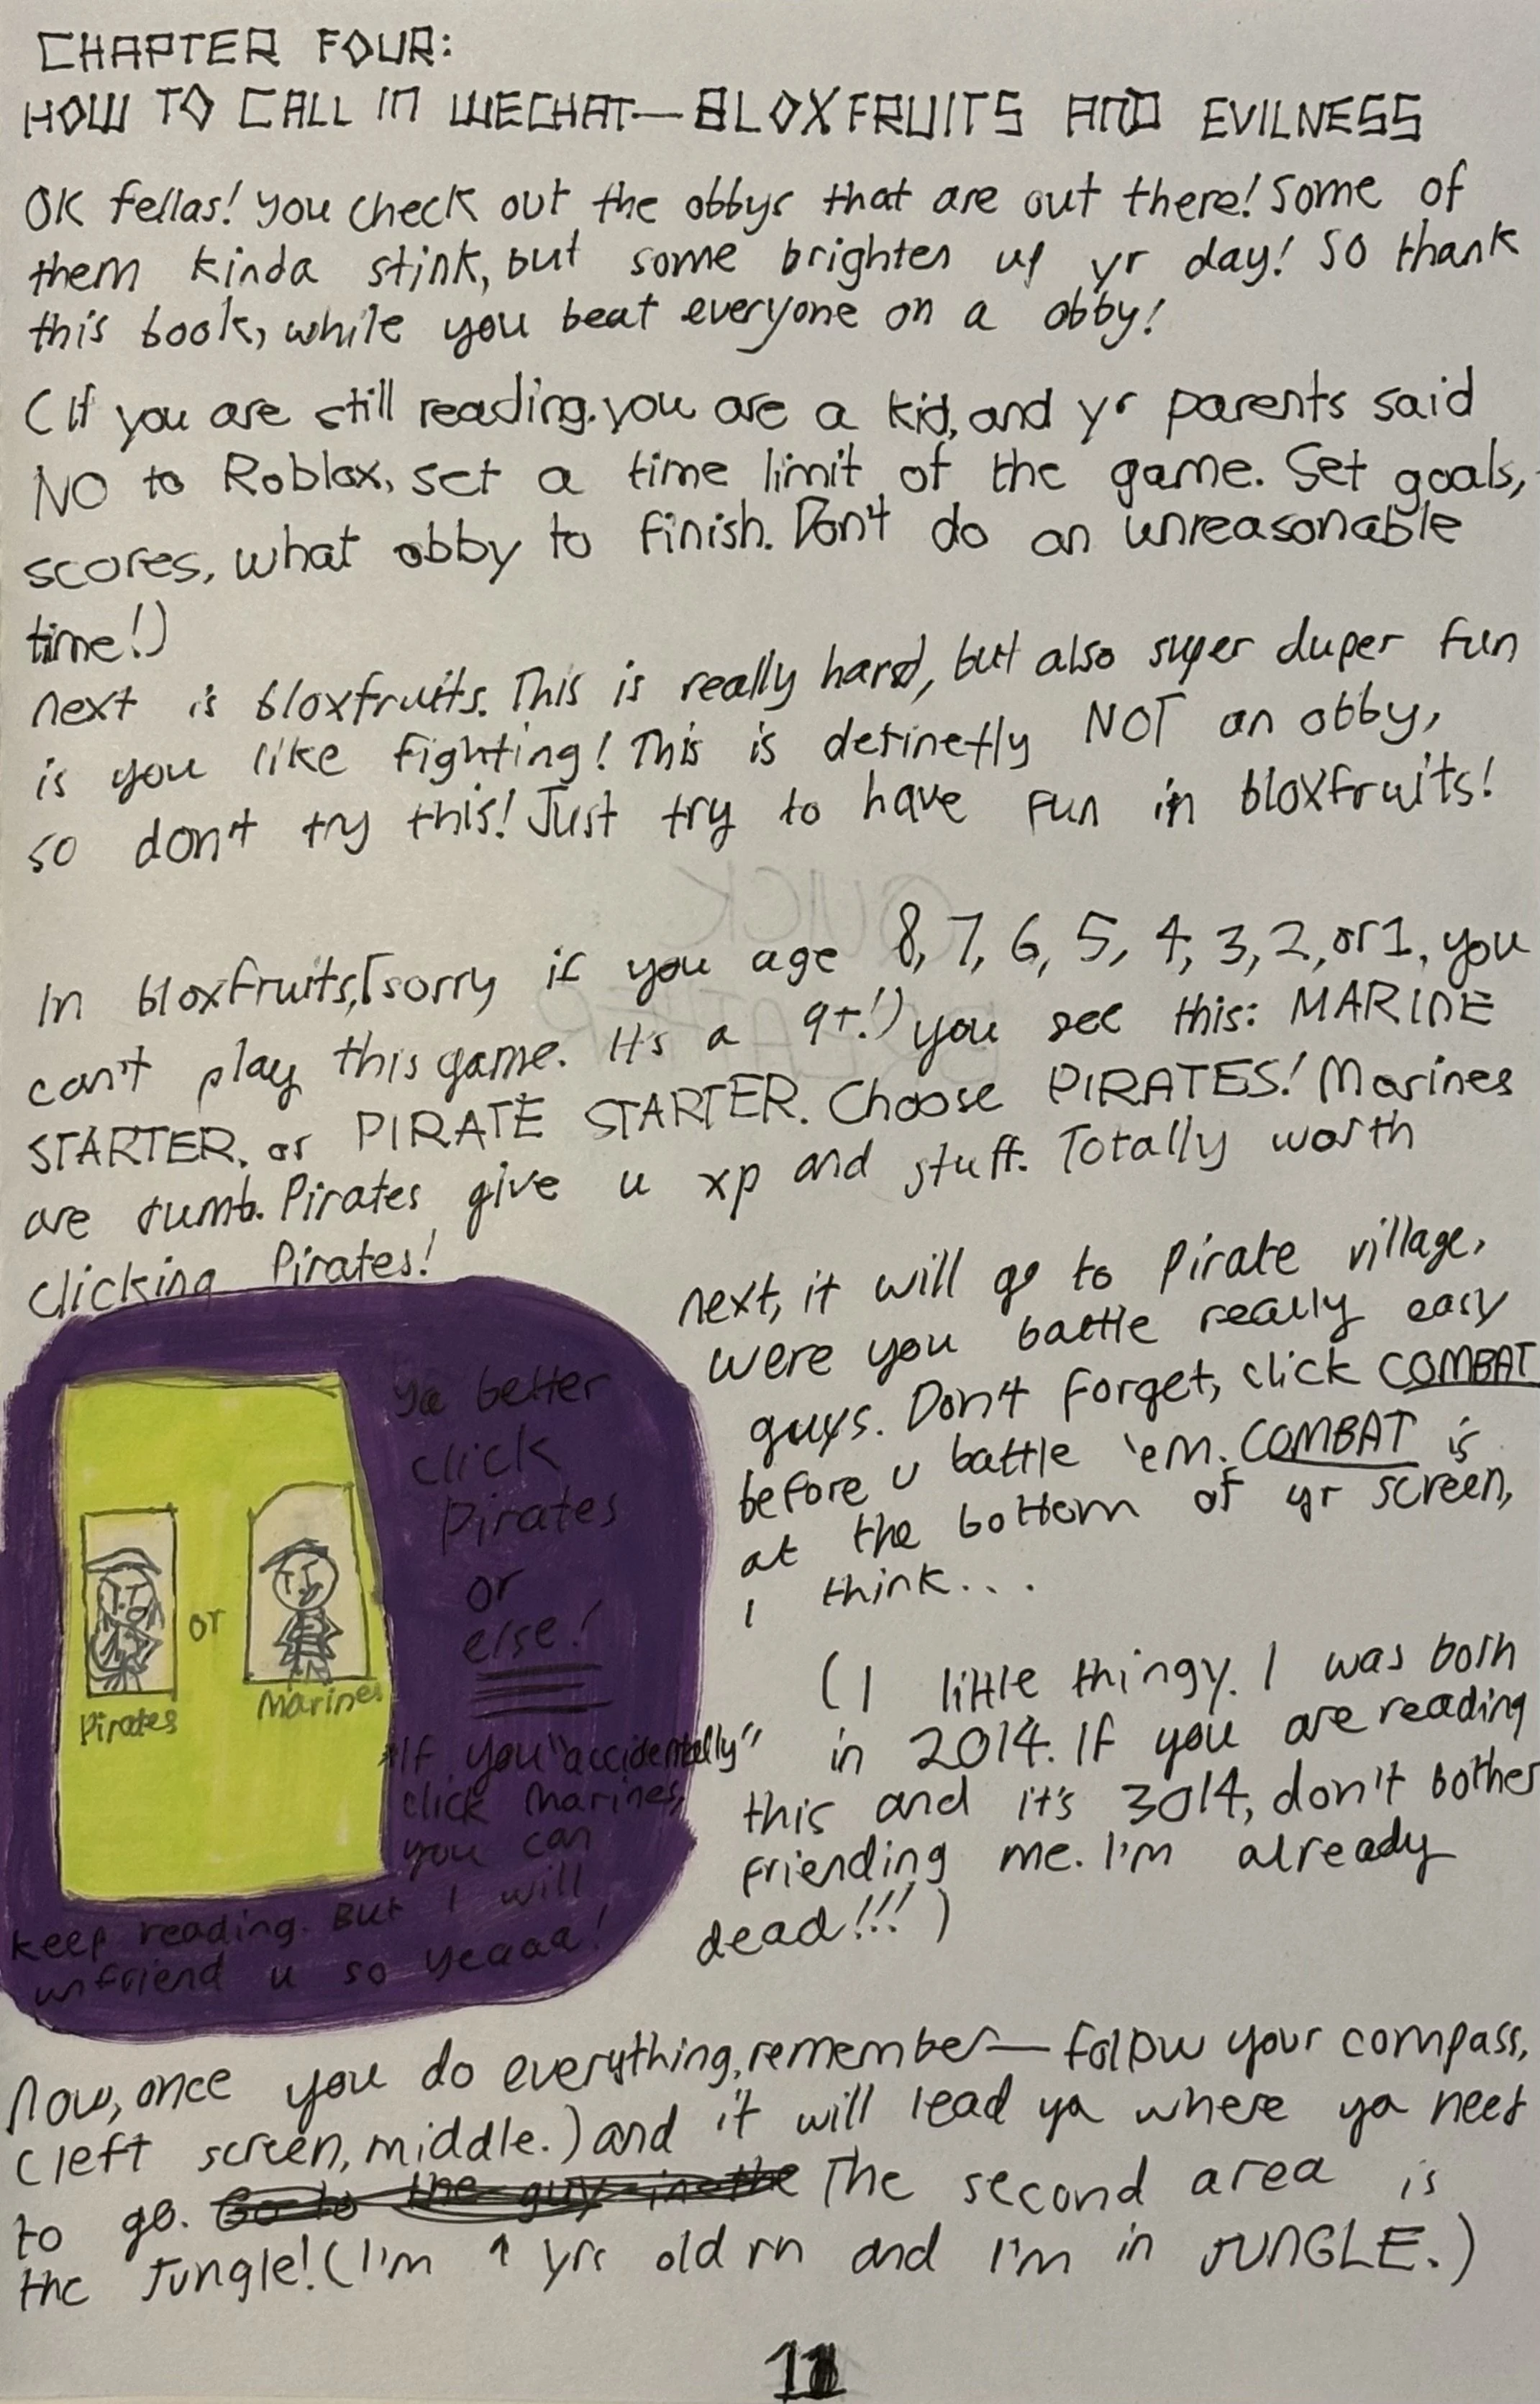 CHAPTER FOUR:
HOW TO CALL IN WECHAT—BLOXFRUITS AND EVILNESS
OK fellas! you check out the obbys that are out there! Some of
them kinda stink, but some brighten up yr day! SO thank
this book, while you beat everyone on a obby!
(If you are still reading, you are a kid, and yr parents said
NO to Roblox, set a time limit of the game. Set goals,
scores, what obby to finish. Don't do an unreasonable
time!)
next is bloxfruits. This is really hard, but also super duper fun
is you like fighting! This is definetly NOT an obby,
so don't try this! Just try to have fun in bloxfruits!
QUICK
BREATHER
In bloxfruits, [sorry if you age 8, 7, 6, 5, 4, 3, 2, or 1, you
can't play this game. It's a 9+!) you see this: MARINE
STARTER, or PIRATE STARTER. Choose PIRATES! Marines
are dumb. Pirates give u xp and stuff. Totally worth
clicking Pirates!
Ya better
click
Pirates
or
else!
or
Pirates
Marines
*If you "accidentally"
click Marines,
you can
keep reading. But I will
unfriend u so yeaaa!
next, it will go to Pirate village,
were you battle really easy
guys. Don't forget, click COMBAT
before u battle 'em. COMBAT is
at the bottom of yr screen,
I think...
(1 little thingy. I was born
in 2014. If you are reading
this and it's 3014, don't bother
friending me. I'm already
dead!!!)
Now, once you do everything, remember— follow your compass,
(left screen, middle.) and it will lead ya where ya need
to go. Go to the guy in the The second area is
the Jungle! (I'm yrs old rn and I'm in JUNGLE.)
11